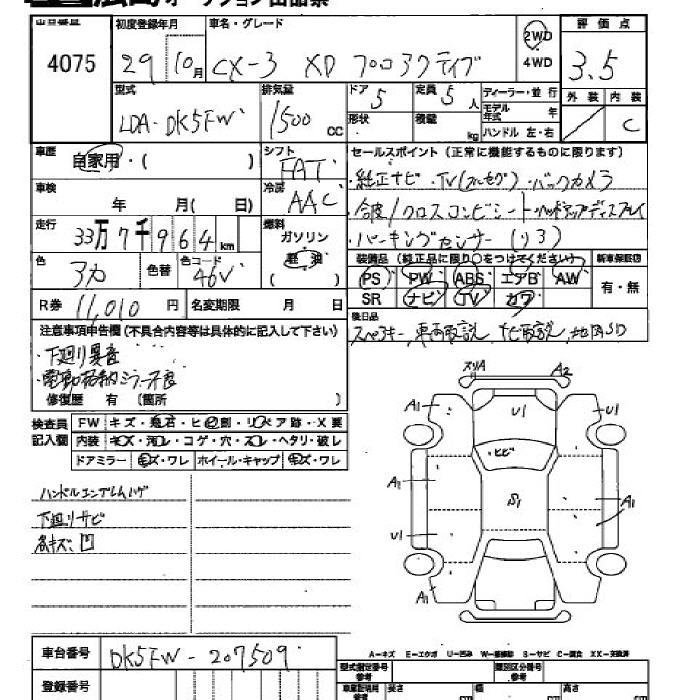 出品番号 初度登録年月 車名・グレード 評価点
4075 29 10月 CX-3 XD プロアクティブ 2WD 4WD 3.5
型式 排気量 ドア 5 定員 5人 ディーラー・並行 外装 内装
LDA-DK5FW 1500cc 形状 積載 kg モデル年式 年 ハンドル 左・右 C
車歴 自家用・( ) シフト FAT セールスポイント(正常に機能するものに限ります)
・純正ナビ・TV(フルセグ)・バックカメラ
車検 年 月( 日) 冷房 AAC
・合皮/クロスコンビシート・ヘッドアップディスプレイ
走行 33万7千964km 燃料 ガソリン 軽油 ( )
・パーキングセンサー(リヤ)
色 アカ 色替 色コード 46V
装備品(純正品に限り○をつけてください) 新車保証書
PS PW ABS エアB AW 有・無
SR ナビ TV カワ
R券 11,010円 名変期限 月 日
後日品
スペアキー, 車両取説, ナビ取説, 地図SD
注意事項申告欄(不具合内容等は具体的に記入して下さい)
・下廻り異音
・電動格納ミラー不良
修復歴 有(箇所 )
検査員記入欄 FW キズ・飛石・ヒビ割・リペア跡・X要
内装 キズ・汚レ・コゲ・穴・スレ・ヘタリ・破レ
ドアミラー キズ・ワレ ホイール・キャップ キズ・ワレ
ハンドルエンブレムハゲ
下廻りサビ
各キズ凹
スリA A2
A1 U1 U1
ヒビ
A2 S1 A1
U1
A1
A-キズ E-エクボ U-凹み W-補修跡 S-サビ C-腐食 XX-交換済
車台番号 DK5FW-207509
型式指定番号 参考 類別区分番号 参考
登録番号 車庫証明用 参考 長さ cm 幅 cm 高さ cm